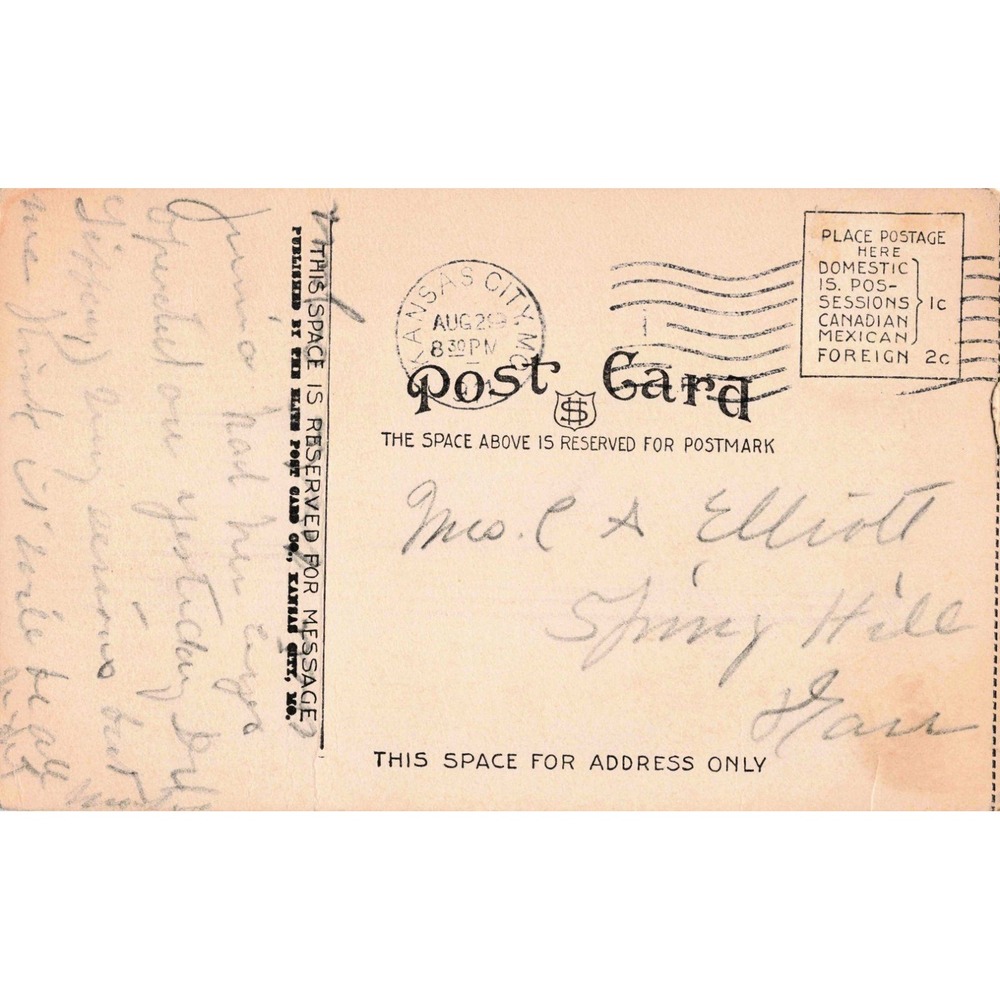 Junnio had her Eyes
Operated on yesterday
very serious but
me think it will be all
THIS SPACE IS RESERVED FOR MESSAGE
PUBLISHED BY THE ELITE POST CARD CO., KANSAS CITY, MO.
KANSAS CITY, MO.
AUG 29
8 30 PM
PLACE POSTAGE
HERE
DOMESTIC
IS. POS-
SESSIONS
CANADIAN
MEXICAN
1c
FOREIGN 2c
Post Card
THE SPACE ABOVE IS RESERVED FOR POSTMARK
Mrs. C A Elliott
Spring Hill
Kans
THIS SPACE FOR ADDRESS ONLY